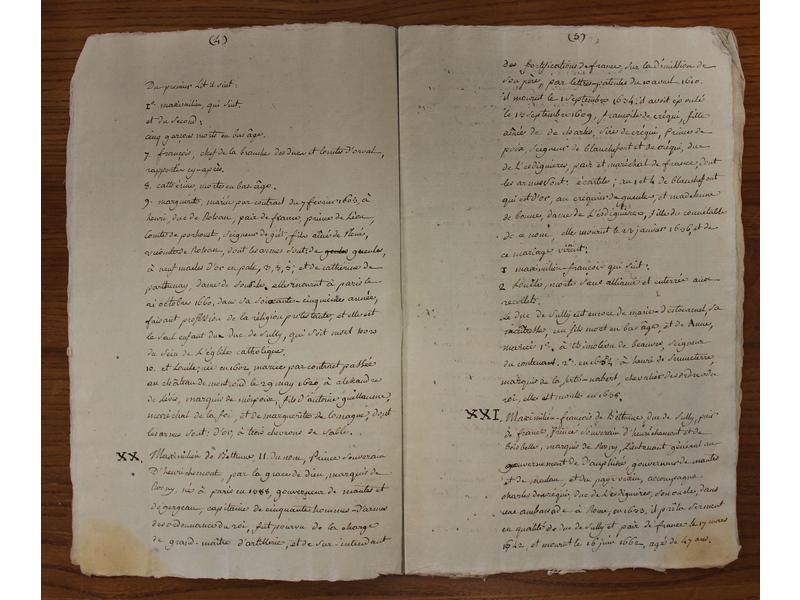 (4)
Du premier Lit il vint:
1°. maximilien, qui suit.
et du second;
cinq garçons morts en bas âge.
7. françois, chef de la branche des ducs et comtes d'orval,
rapportée cy-après.
8. cathérine, morte en bas âge.
9. margueritte, mariée par contract du 7 février 1605, à
henri, duc de Rohan, pair de france, prince de Léon,
Comte de porhoet, seigneur de gié, fils aîné de René,
vicomte de Rohan, dont les armes sont: de gueules,
à neuf macles d'or en pale, 3, 3, 3; et de catherine de
parthenay, dame de Soubise, elle mourut à paris le
21 octobre 1660, dans sa soixante-cinquième année,
faisant profession de la religion protestante, et elle est
le seul enfant du duc de Sully, qui soit mort hors
du sein de L'église catholique.
10. et Louise, née en 1602, mariée par contract passé
au château de le 29 may 1620, à alexandre
de Lévis, marquis de mirepoix, fils d'antoine guillaume,
maréchal de la foi, et de margueritte de Lomagne, dont
les armes sont: d'or, à trois chevrons de sable.
XX. Maximilien de Bethune II. du nom, Prince Souverain
D'henrichemont par la grace de dieu, marquis de
Rosny, né à paris en 1588, gouverneur de mantes et
de gergeau, capitaine de cinquante hommes-D'armes
des ordonnances du roi, fut pourvu de la charge
de grand-maître d'artillerie, et de sur-intendant
(5)
des fortifications de france, sur la Démission de
son père, par lettres-patentes du 10 avril 1610.
il mourut le 1 Septembre 1634: il avoit épousé
le 13 Septembre 1609, françoise de créqui, fille
aînée de de charles, Sire de créqui, Prince de
poix, Seigneur de blanchefort et de créqui, duc
de L'esdiguières, pair et maréchal de france, dont
les armes sont: écartelé; au 1 et 4 de blanchefort
qui est d'or, au créquier de gueules, et madeleine
de bonnes, dame de L'esdiguières, fille du connétable
de ce nom, elle mourut le 23 janvier 1656, et de
ce mariage vinrent:
1 maximilien-françois qui suit:
2 Louise, morte sans alliance et enterrée aux
recollets.
Le duc de Sully eut encore de marie d'estournel, sa
maîtresse, un fils mort en bas âge, et de Anne,
mariée 1°. à thimoléon de beauves, seigneur
du contenant. 2°. en 1654 à henri de Senneterre,
marquis de la ferté-nabert, chevalier des ordres du
roi, elle est morte en 1658.
XXI. Maximilien-françois de Béthune, duc de Sully, pair
de france, Prince Souverain d'henrichemont et de
boisbelle, marquis de Rosny, Lieutenant-général au
gouvernement de Dauphiné, gouverneur de mantes
et de meulan, et du pays vexin, accompagna
charles de créqui, duc de L'esdiguières, son oncle, dans
une ambassade à Rome, en 1633. il prêta serment
en qualité de duc de Sully et pair de france le 17 mars
1642, et mourut le 16 juin 1662, agé de 47 ans.